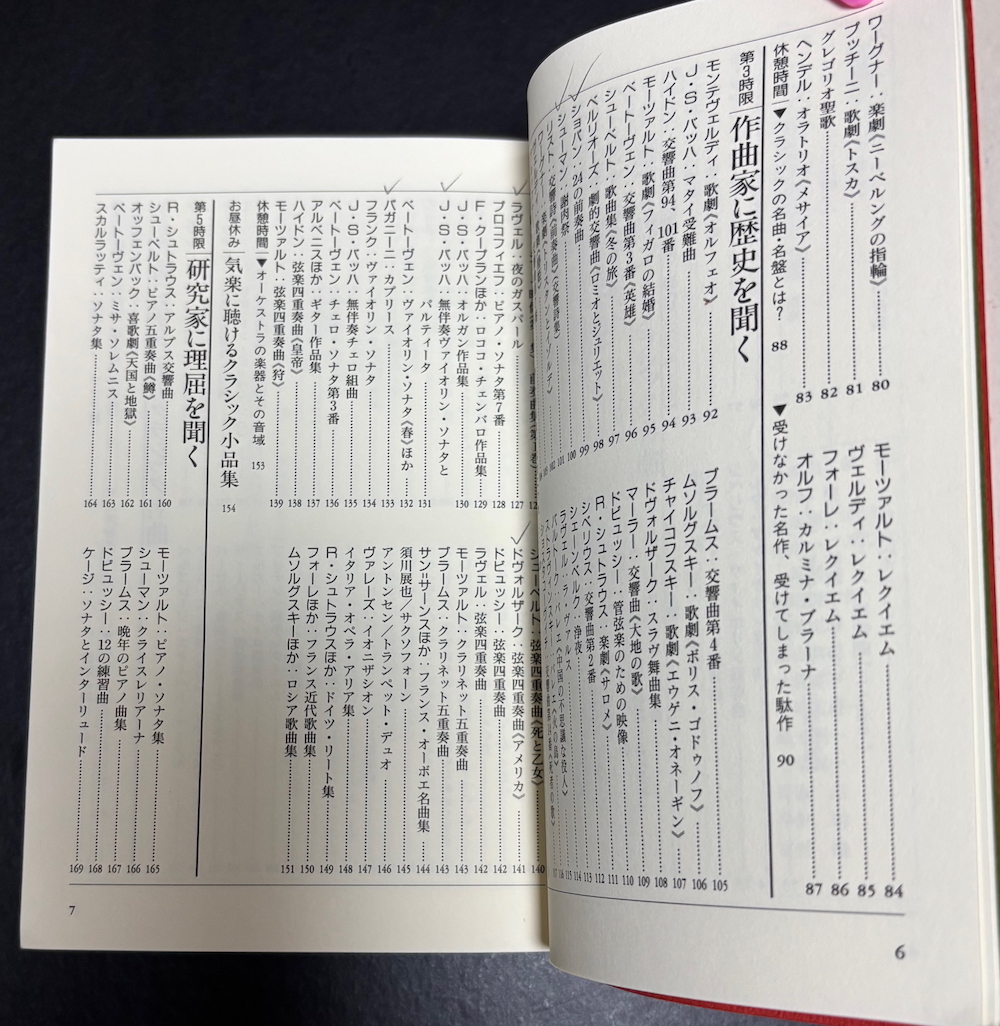 ワーグナー：楽劇《ニーベルングの指輪》 80
プッチーニ：歌劇《トスカ》 81
グレゴリオ聖歌 82
ヘンデル：オラトリオ《メサイア》 83
モーツァルト：レクイエム 84
ヴェルディ：レクイエム 85
フォーレ：レクイエム 86
オルフ：カルミナ・ブラーナ 87
休憩時間 ▼クラシックの名曲・名盤とは？ 88 ▼受けなかった名作、受けてしまった駄作 90
第3時限 作曲家に歴史を聞く
モンテヴェルディ：歌劇《オルフェオ》 92
J・S・バッハ：マタイ受難曲 93
ハイドン：交響曲第94、101番 94
モーツァルト：歌劇《フィガロの結婚》 95
ベートーヴェン：交響曲第3番《英雄》 96
シューベルト：歌曲集《冬の旅》 97
ベルリオーズ：劇的交響曲《ロミオとジュリエット》 98
ショパン：24の前奏曲 99
シューマン：謝肉祭 100
リスト：交響詩《前奏曲》（交響詩集） 101
ブラームス：交響曲第4番 105
ムソルグスキー：歌劇《ボリス・ゴドゥノフ》 106
チャイコフスキー：歌劇《エウゲニ・オネーギン》 107
ドヴォルザーク：スラヴ舞曲集 108
マーラー：交響曲《大地の歌》 109
ドビュッシー：管弦楽のための映像 110
R・シュトラウス：楽劇《サロメ》 111
シベリウス：交響曲第2番 112
シェーンベルク：浄夜 113
ラヴェル：ラ・ヴァルス 114
バルトーク：バレエ《中国の不思議な役人》 115
6
ラヴェル：夜のガスパール 127
プロコフィエフ：ピアノ・ソナタ第7番 128
F・クープランほか：ロココ・チェンバロ作品集 129
J・S・バッハ：オルガン作品集 130
J・S・バッハ：無伴奏ヴァイオリン・ソナタと
パルティータ 131
ベートーヴェン：ヴァイオリン・ソナタ《春》ほか 132
パガニーニ：カプリース 133
フランク：ヴァイオリン・ソナタ 134
J・S・バッハ：無伴奏チェロ組曲 135
ベートーヴェン：チェロ・ソナタ第3番 136
アルベニスほか：ギター作品集 137
ハイドン：弦楽四重奏曲《皇帝》 138
モーツァルト：弦楽四重奏曲《狩》 139
シューベルト：弦楽四重奏曲《死と乙女》 140
ドヴォルザーク：弦楽四重奏曲《アメリカ》 141
ドビュッシー：弦楽四重奏曲 142
ラヴェル：弦楽四重奏曲 142
モーツァルト：クラリネット五重奏曲 143
ブラームス：クラリネット五重奏曲 143
サン=サーンスほか：フランス・オーボエ名曲集 144
須川展也／サクソフォーン 145
アントンセン／トランペット・デュオ 146
ヴァレーズ：イオニザシオン 147
イタリア・オペラ・アリア集 148
R・シュトラウスほか：ドイツ・リート集 149
フォーレほか：フランス近代歌曲集 150
ムソルグスキーほか：ロシア歌曲集 151
休憩時間 ▼オーケストラの楽器とその音域 153
お昼休み 気楽に聴けるクラシック小品集 154
第5時限 研究家に理屈を聞く
R・シュトラウス：アルプス交響曲 160
シューベルト：ピアノ五重奏曲《鱒》 161
オッフェンバック：喜歌劇《天国と地獄》 162
ベートーヴェン：ミサ・ソレムニス 163
スカルラッティ：ソナタ集 164
モーツァルト：ピアノ・ソナタ集 165
シューマン：クライスレリアーナ 166
ブラームス：晩年のピアノ曲集 167
ドビュッシー：12の練習曲 168
ケージ：ソナタとインターリュード 169
7